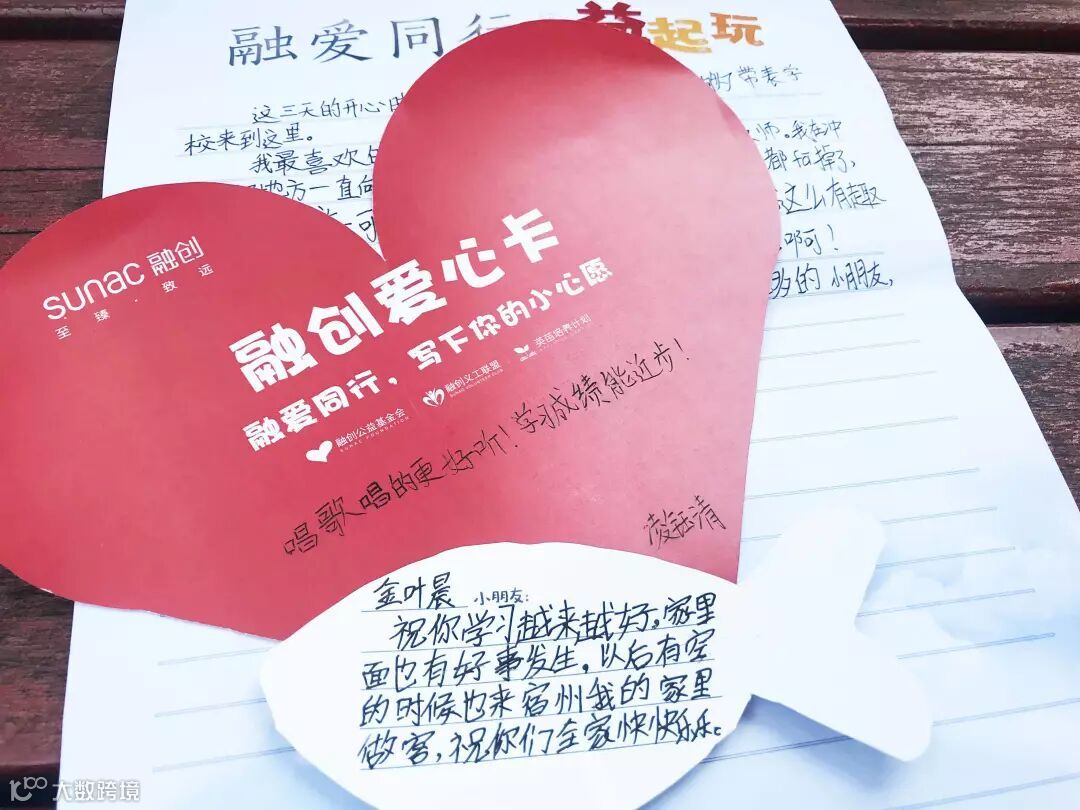 融爱同行 益起玩
这三天的开心
带表学
校来到这里。
师。我在冲
我最喜欢
都
方一直向
这么有趣
啊！
的小朋友,
sunac 融创
至臻·致远
融创爱心卡
融爱同行，写下你的小心愿
融创公益基金会
SUNAC FOUNDATION
融创义工联盟
英苗培养计划
唱歌唱的更好听！学习成绩能近步！
凌钰清
金叶晨 小朋友:
祝你学习越来越好。家里
面也有好事发生，以后有空
的时候也来宿州我的家里
做客，祝你们全家快快乐乐。
大数跨境